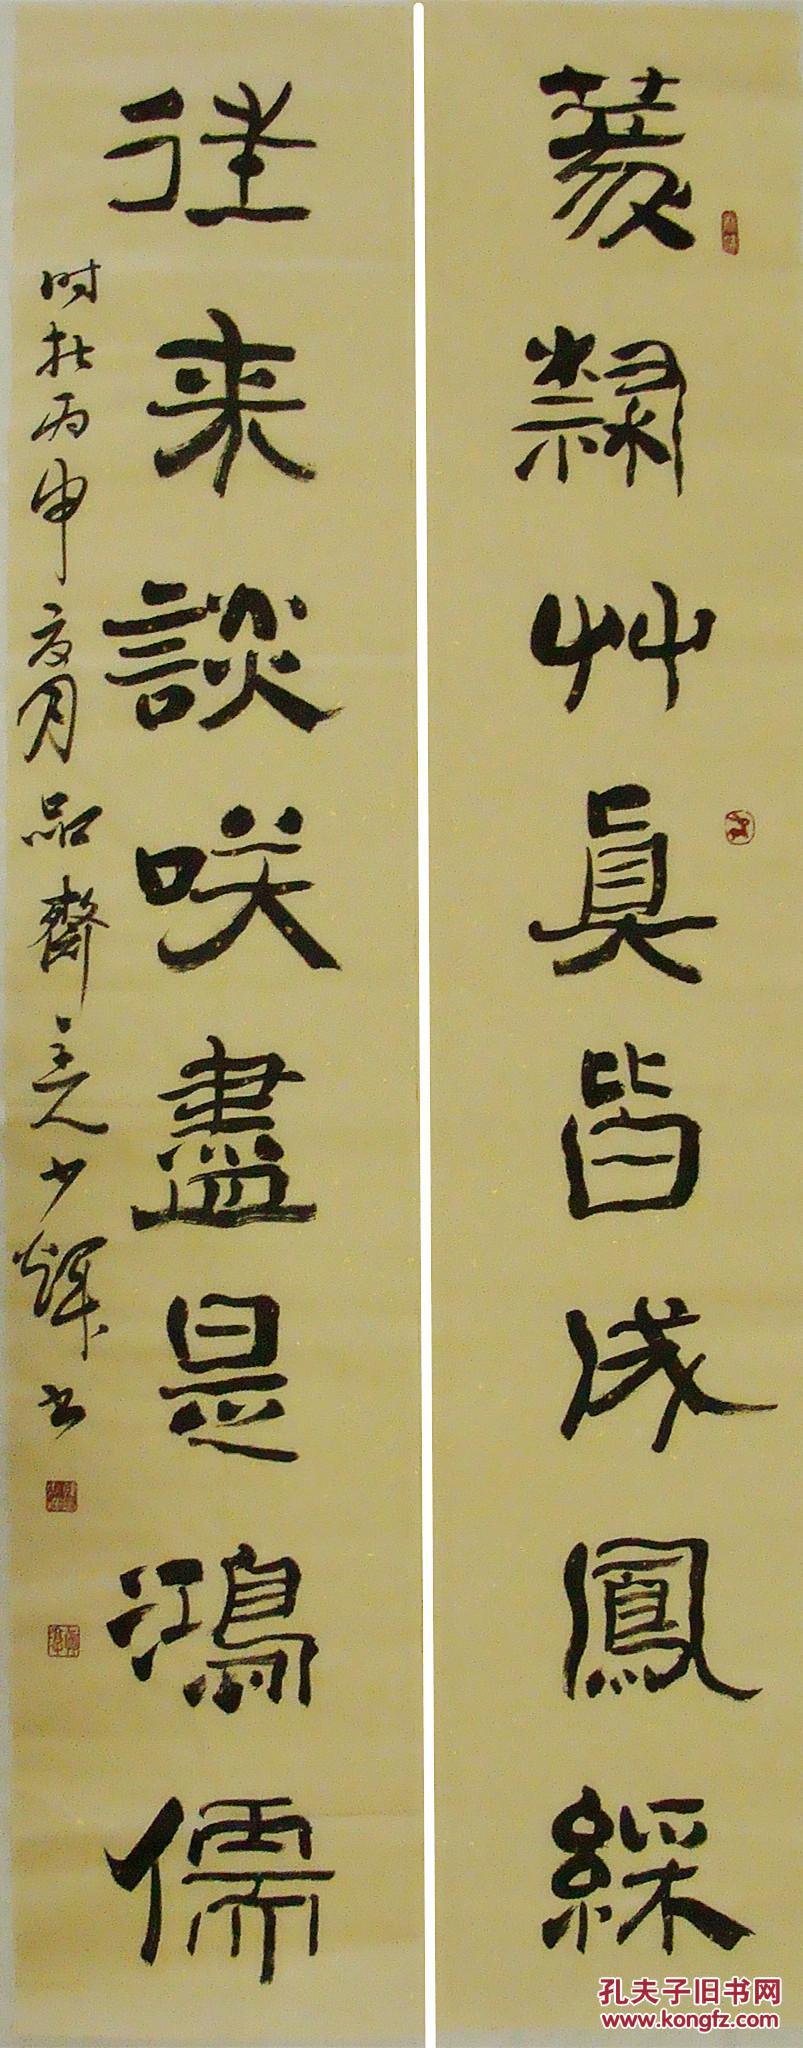 篆隸艸真皆成鳳綵
往来談咲盡是鴻儒
时在丙申夏月品齋主人少輝书
孔夫子旧书网
www.kongfz.com